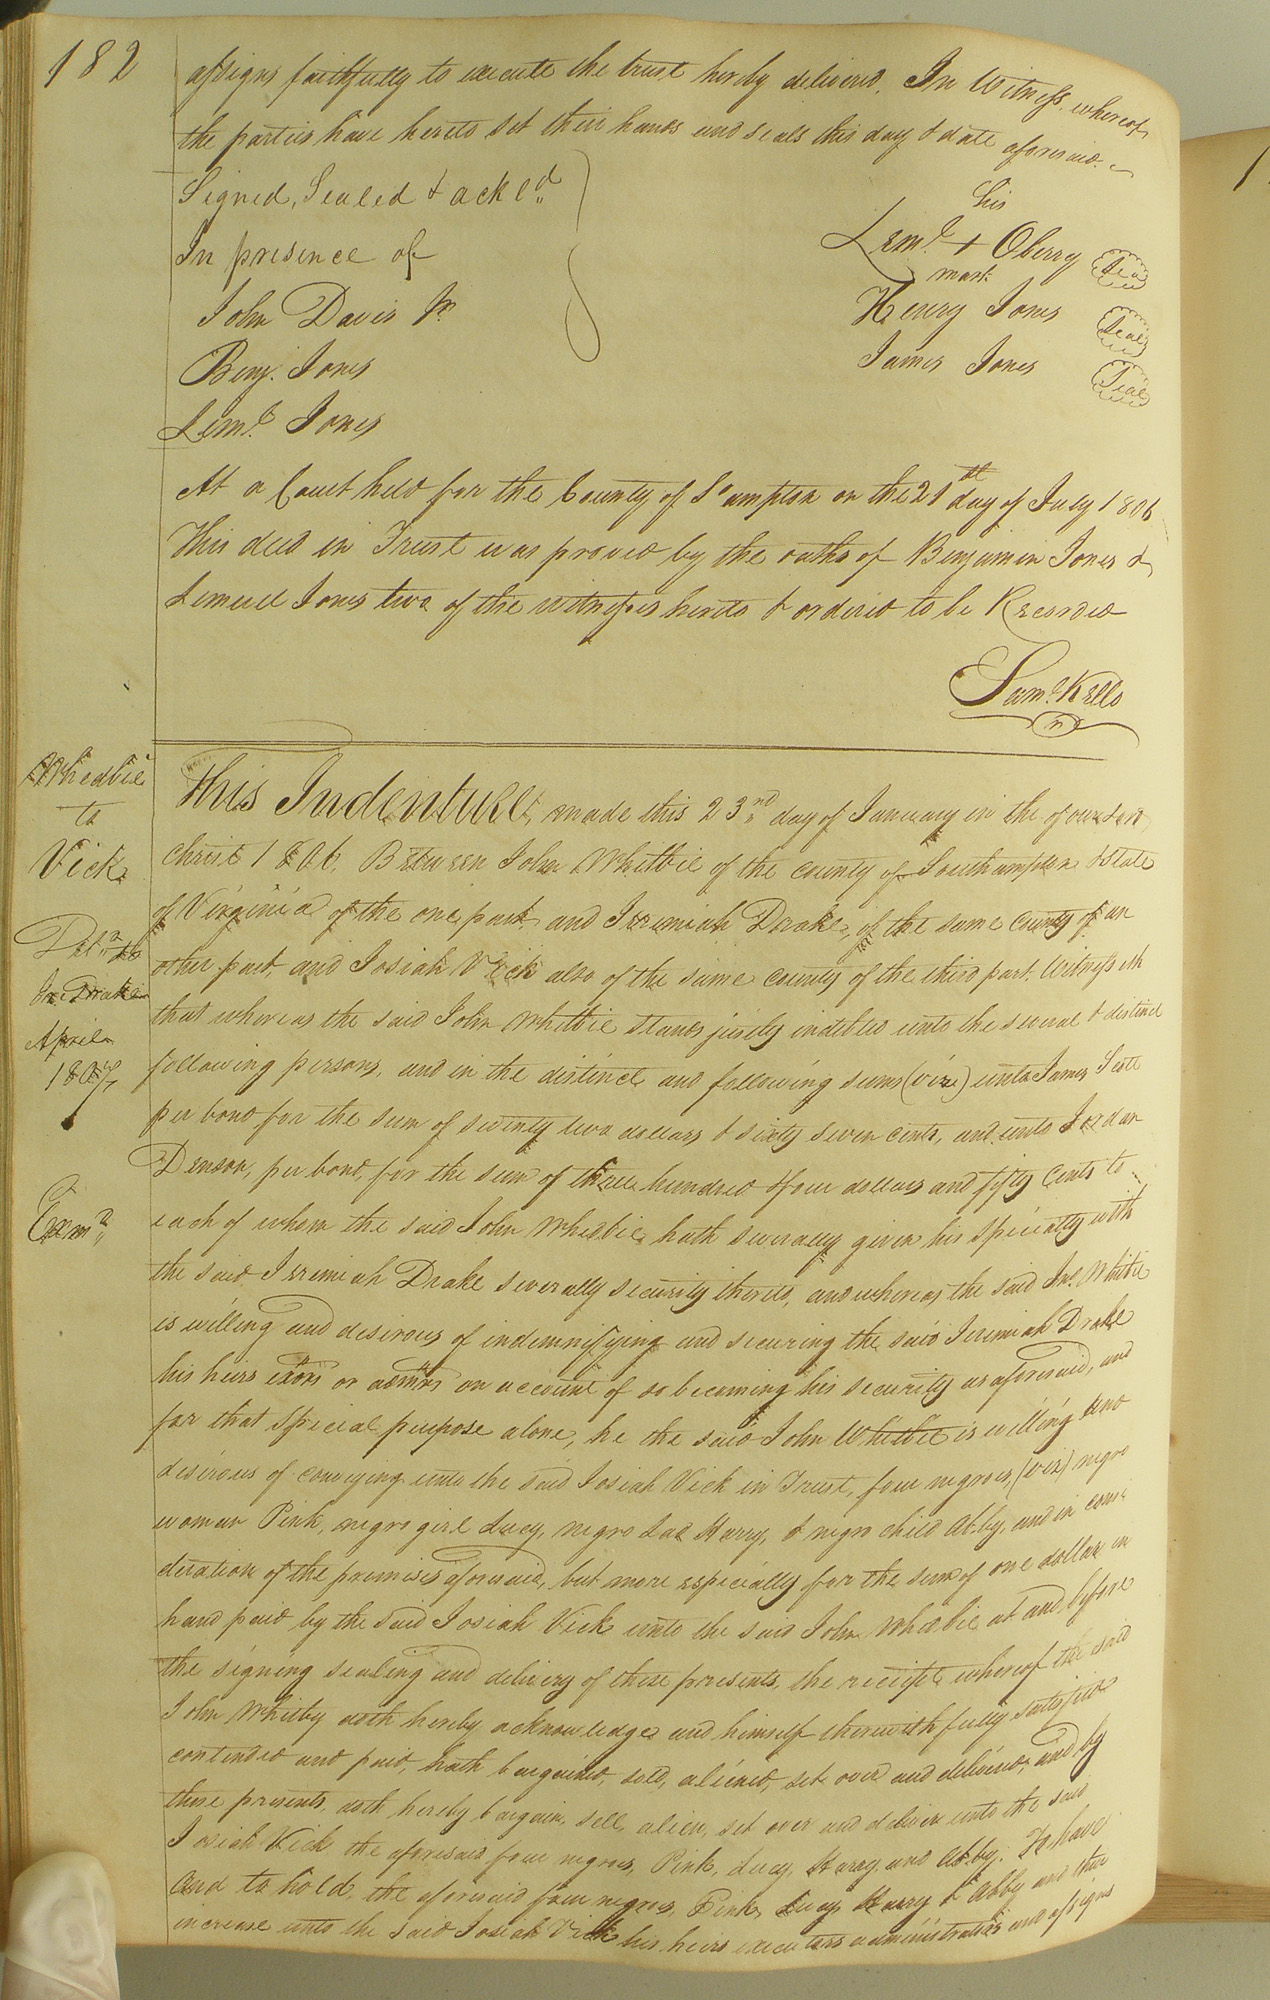 182
assigns faithfully to execute the trust hereby delivered. In Witness whereof
the parties have hereto set their hands and seals this day & date aforesaid.
Signed, Sealed & ackd.
In presence of
John Davis Jr.
Benj. Jones
Leml. Jones
his
Leml. + Oberry Seal
mark
Henry Jones Seal
James Jones Seal
At a Court held for the County of So.ampton on the 21st day of July 1806
This deed in Trust was proved by the oaths of Benjamin Jones &
Lemuel Jones two of the witnesses hereto & ordered to be Recorded
Saml. Kello
Whedbie
to
Vick
Deld. to
Jre. Drake
April
1807
Exmd.
This Indenture, made this 23nd day of January in the of our Lord
Christ 1806, Between John Whitbie of the county of Southampton & State
of Virginia of the one part, and Jeremiah Drake, of the same county of an
other part, and Josiah Vick also of the same county of the third part, Witnesseth
that whereas the said John Whitbie stands justly indebted unto the several & distinct
following persons, and in the distinct and following sums (viz) unto James Scott
per bond for the sum of seventy two dollars & sixty seven cents, and unto Jordan
Denson, per bond, for the sum of three hundred & four dollars and fifty cents to
each of whom the said John Whedbie hath severally given his specialty with
the said Jeremiah Drake severally security thereto, and whereas the said Jno. Whitbie
is willing and desirous of indemnifying and securing the said Jeremiah Drake
his heirs exors or admrs on account of so becoming his security as aforesaid, and
for that special purpose alone, he the said John Whitbie is willing and
desirous of conveying unto the said Josiah Vick in Trust, four negroes, (viz) negro
woman Pink, negro girl Lucy, negro lad Harry, & negro child Abby, and in consi
deration of the premises aforesaid, but more especially for the sum of one dollar in
hand paid by the said Josiah Vick unto the said John Whedbie at and before
the signing sealing and delivery of these presents, the receipt whereof the said
John Whitby doth hereby acknowledge and himself therewith fully satisfied
contented and paid, hath bargained, sold, aliened, set over and delivered, and by
these presents, doth hereby bargain, sell, alien, set over and deliver unto the said
Josiah Vick the aforesaid four negroes, Pink, Lucy, Harry and Abby. To have
and to hold, the aforesaid four negroes, Pink, Lucy, Harry & Abby and their
increase unto the said Josiah Vick his heirs executors administrators and assigns